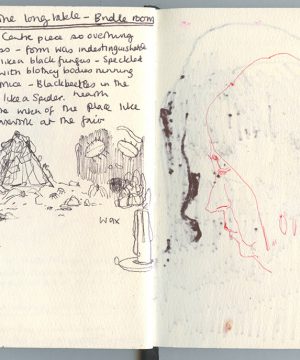 The long table - Bridle room
Centre piece so overhung
form was indestinguishable
like a black fungus - Speckled
with blotchy bodies running
mice - Blackbeetles in the
like a Spider. hearth
of the place like
at the fair
wax